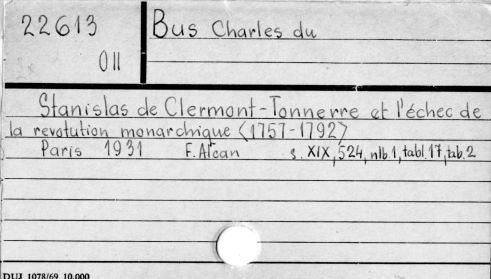 22613
Bus Charles du
011
Stanislas de Clermont-Tonnerre et l'échec de
la revotution monarchique <1757-1792>
Paris 1931 F. Alcan s. XIX, 524, nlb. 1, tabl. 17, tab. 2
DUJ 1078/69 10.000